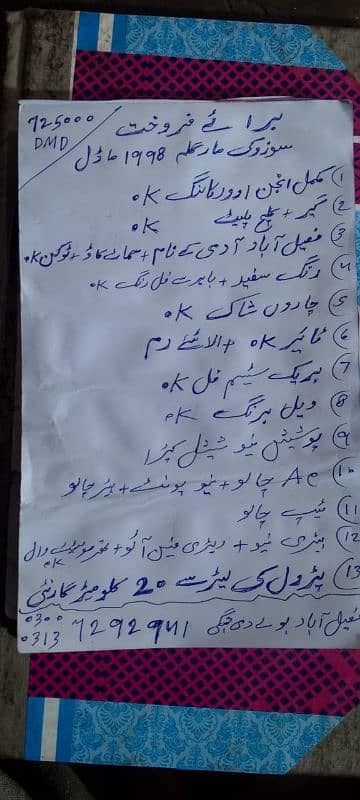 725000
DMD
برائے فروخت
سوزوکی مارگلہ 1998 ماڈل
1 مکمل انجن اوورہالنگ ok
2 گیر + کلچ پلیٹ ok
3 فیصل آباد آدمی کے نام + سمارٹ کارڈ + ٹوکن ok
4 رنگ سفید + باہر سے فل رنگ ok
5 چاروں شاک ok
6 ٹائر ok + الائے رم
7 بریک سٹیم فل ok
8 ویل برنگ ok
9 پوشش نیو سپیشل کپڑا
10 Ac چالو + نیو پوائنٹ + ہیٹر چالو
11 ٹیپ چالو
12 بیٹری نیو + ریڈی فین آٹو + تھرموسٹیٹ وال ok
13 پٹرول کی لیٹر سے 20 کلومیٹر گارنٹی
فیصل آباد بولے دی جھگی 7292941
0300
0313